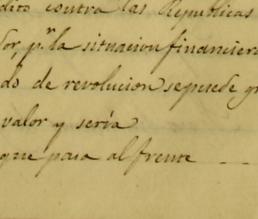 dito contra las Republicas
dor, p.r la situacion financiera
do de revolucion se puede gr
valor y sería
que pasa al frente